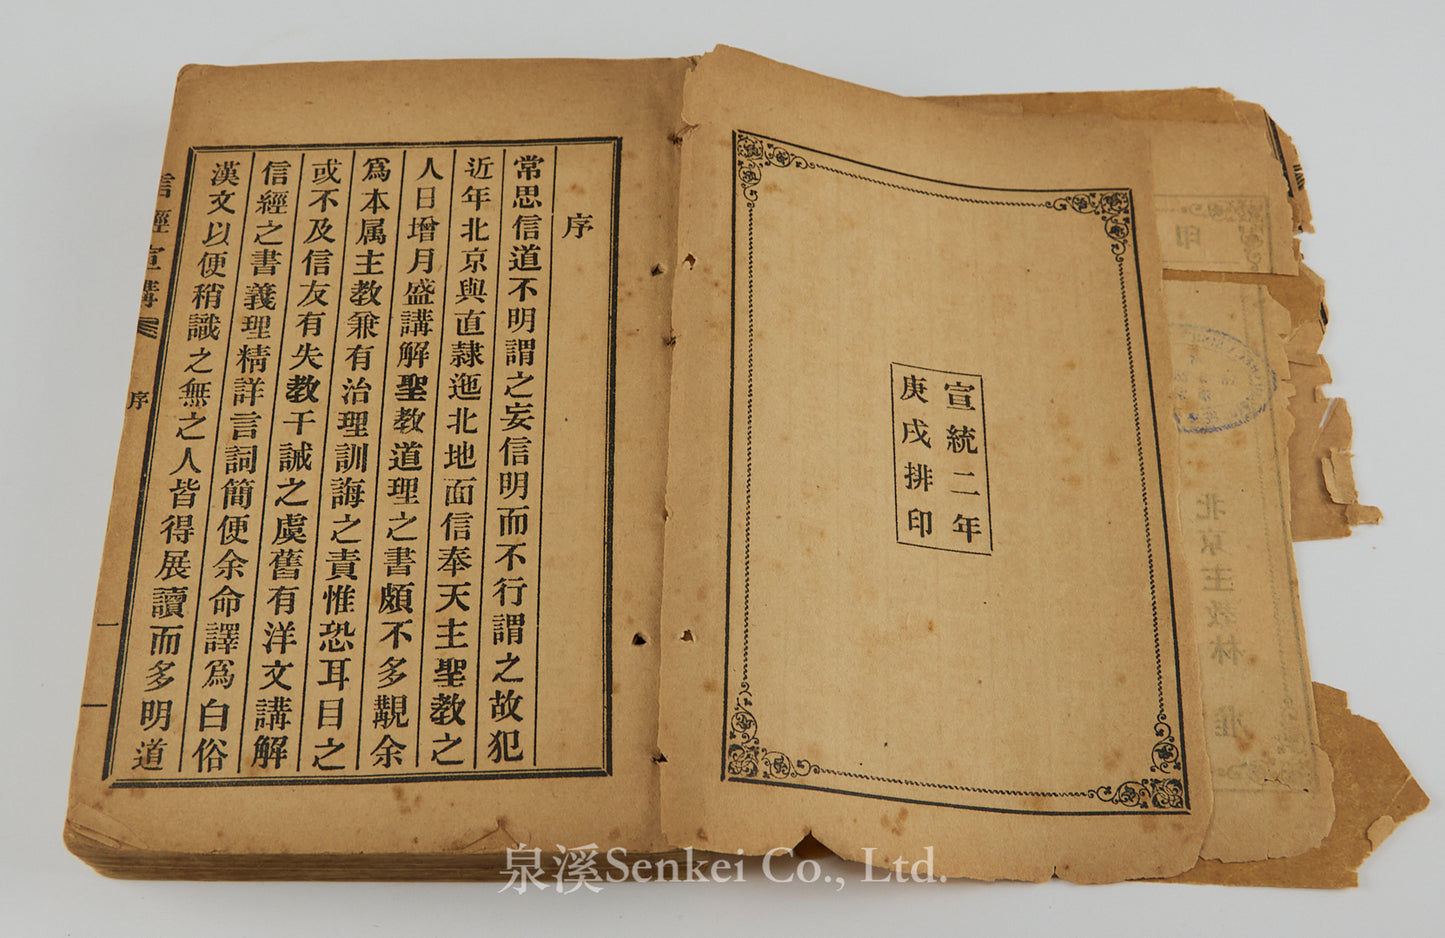 印
北京主教林 准
宣統二年
庚戌排印
序
常思信道不明謂之妄信明而不行謂之故犯
近年北京與直隸迤北地面信奉天主聖教之
人日增月盛講解聖教道理之書頗不多覯余
爲本属主教兼有治理訓誨之責惟恐耳目之
或不及信友有失教干誡之虞舊有洋文講解
信經之書義理精詳言詞簡便余命譯爲白俗
漢文以便稍識之無之人皆得展讀而多明道
信經直講
序
泉溪Senkei Co., Ltd.